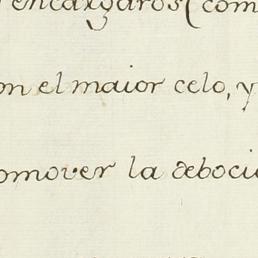 encargaros (com
on el maior celo, y
omover la deboci